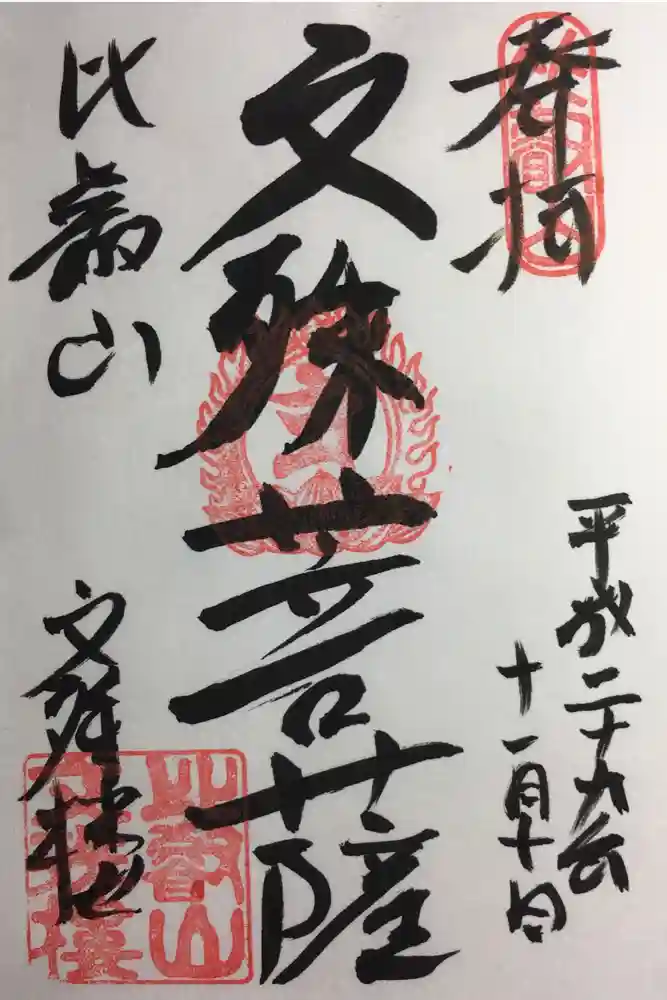 奉拝
平成二十九年
十一月十日
文殊菩薩
比叡山
文殊楼
比叡山
文殊楼